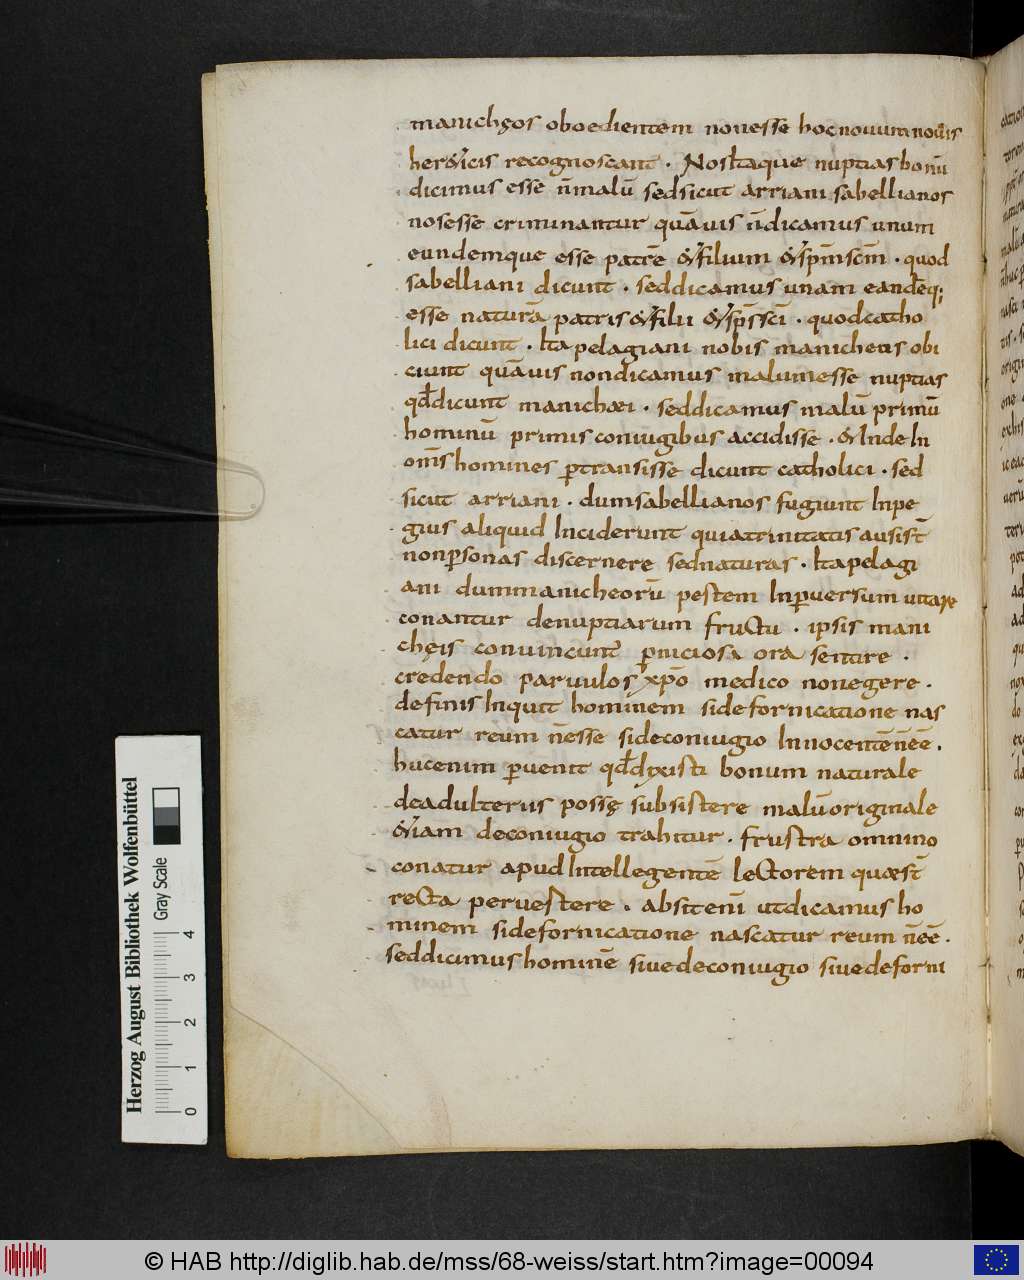 manichęos oboedientem nonesse hocnouumnouis
her&icis recognoscant · Nos Itaque nuptias bonū
dicimus esse n̄ malū sedsicut arriani sabellianos
nosesse criminantur quāuis n̄dicamus unum
eundemque esse patrē & filium & sp̄m sc̄m · quod
sabelliani dicunt · seddicamus unam eandēq;
esse naturā patris & filii & sp̄s sc̄i · quodcatho
lici dicunt · Ita pelagiani nobis manicheus obi
ciunt quāuis nondicamus malumesse nuptias
qđ dicunt manichæi · seddicamus malū primū
hominū primis coniugibus accidisse · & Inde In
om̄s homines p̱transisse dicunt catholici · sed
sicut arriani · dumsabellianos fugiunt Inpe
gius aliquid Inciderunt quiatrinitatis ausist̄
nonp̱sonas discernere sednaturas · Itapelagi
ani dummanicheorū pestem Inp̱uersum uitare
conantur denuptiarum fructu · ipsis mani
chęis conuincunt̄ p̱niciosiora sentire ·
credendo paruulos xp̄o medico nonegere ·
definis Inquit hominem sidefornicatione nas
catur reum n̄esse sideconiugio Innocentē n̄ eē ·
hucenim p̱uenit qđ dixisti bonum naturale
deadulteriis possę subsistere malū originale
&iam deconiugio trahitur · frustra omnino
conatur apud Intellegentē lectorem quæst̄
recta peruestere · absit eni̅ utdicamus ho
minem sidefornicatione nascatur reum n̄ eē ·
seddicimus hominē siuedeconiugio siuedeforni
Herzog August Bibliothek Wolfenbüttel
Gray Scale
0 1 2 3 4
© HAB http://diglib.hab.de/mss/68-weiss/start.htm?image=00094